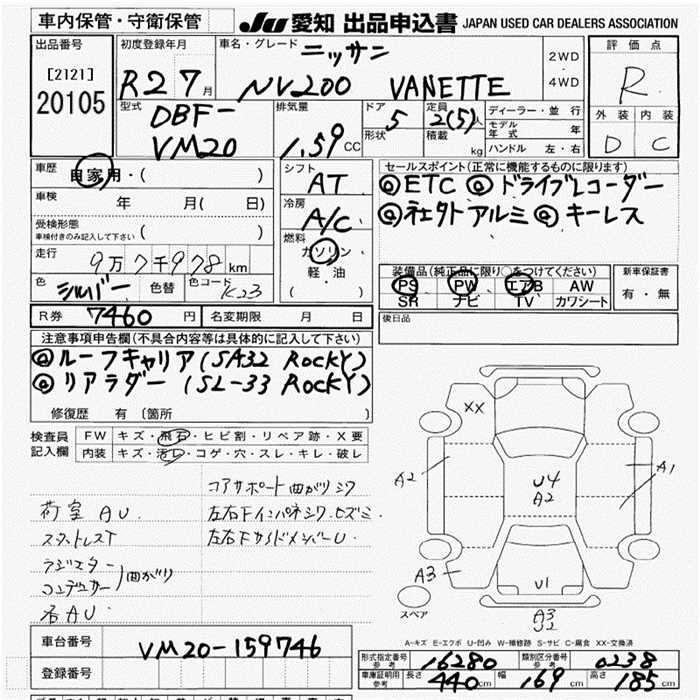 車内保管・守衛保管
JU 愛知 出品申込書 JAPAN USED CAR DEALERS ASSOCIATION
出品番号
[2121]
20105
初度登録年月
R2 7月
車名・グレード ニッサン
NV200 VANETTE
2WD
・
4WD
評価点
R
外装 内装
D C
型式 DBF-
VM20
排気量
1.59CC
ドア 5
形状
定員 2(5)人
積載 kg
ディーラー・並 行
モデル
年 式 年
ハンドル 左・右
車歴
自家用・( )
車検 年 月( 日)
受検形態
車検付きのみ記入して下さい ( )
走行 9万7千978km
色 シルバー 色替 色コード K23
シフト
AT
冷房
A/C
燃料
ガソリン
軽・油
( )
セールスポイント(正常に機能するものに限ります)
◎ETC ◎ドライブレコーダー
◎社外アルミ ◎キーレス
装備品(純正品に限り〇をつけてください)
PS PW エアB AW
SR ナビ TV カワシート
新車保証書
有・無
後日品
R券 7460円 名変期限 月 日
注意事項申告欄(不具合内容等は具体的に記入して下さい)
◎ルーフキャリア(SA32 ROCKY)
◎リアラダー(SL-33 ROCKY)
修復歴 有 〔箇所 〕
検査員
記入欄
FW キズ・飛石・ヒビ割・リペア跡・X要
内装 キズ・汚レ・コゲ・穴・スレ・キレ・破レ
コアサポート曲がりシワ
荷室AU. 左右Fインパネシワ.ヒズミ
左右FサイドメンバーU.
ラジエター
コンデンサー 曲がり
右AU
XX
A2
U4
A2
A1
A3
U1
A3
U2
スペア
A-キズ E-エクボ U-凹み W-補修跡 S-サビ C-腐食 XX-交換済
車台番号 VM20-159746
登録番号
形式指定番号
参考 16280
類別区分番号
参考 0238
車庫証明用
参考 長さ 440cm 幅 169cm 高さ 185cm